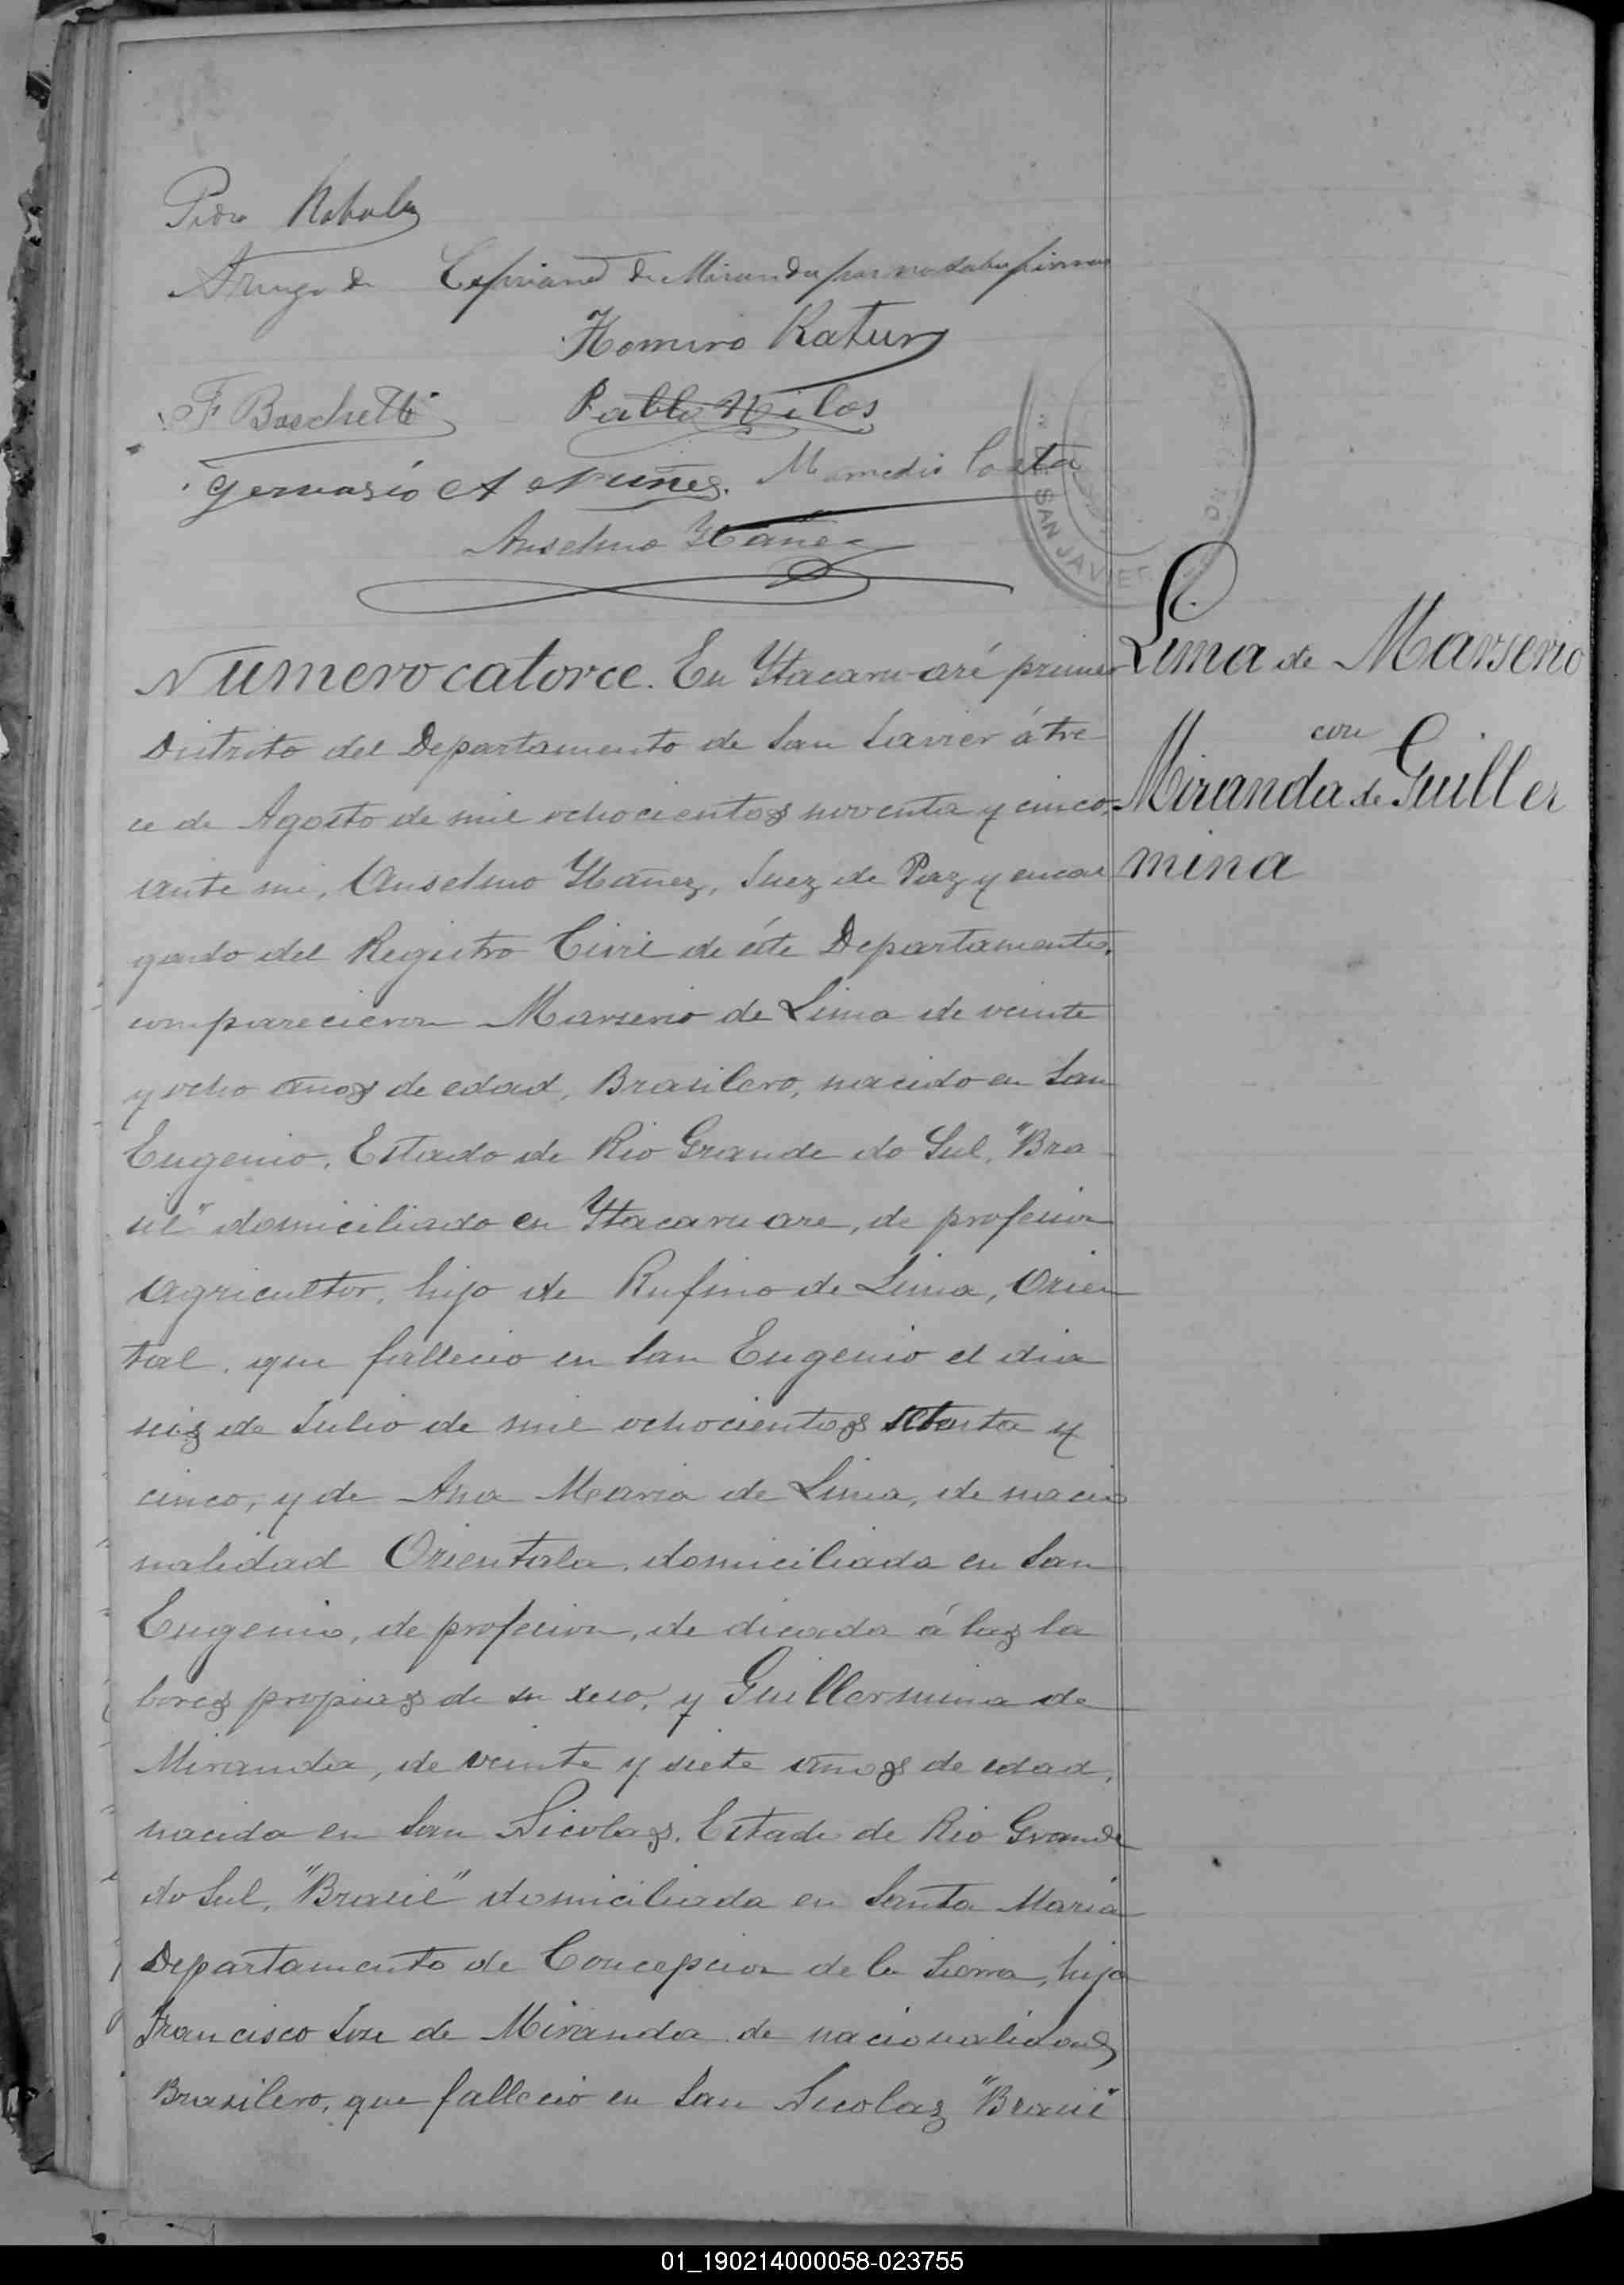 Pedro
A ruego de Cipriano de Miranda por no saber firmar
Homero
F Boschetti Pablo
Gervasio A Nuñes. Mamedio Costa
Anselmo Ybañez
SAN JAVIER
Numero catorce. En Ytacaru-aré primer
Distrito del Departamento de San Javier á tre
ce de Agosto de mil ochocientos noventa y cinco,
ante mi, Anselmo Ybañez, Juez de Paz y encar
gado del Registro Civil de éste Departamento,
comparecieron Marserio de Lima de veinte
y ocho años de edad, Brasilero, nacido en San
Eugenio, Estado de Rio Grande do Sul, "Bra
sil" domiciliado en Ytacaruare, de profesion
Agricultor, hijo de Rufino de Lima, Orien
tal, que fallecio en San Eugenio el dia
seis de Julio de mil ochocientos setenta y
cinco, y de Ana Maria de Lima, de nacio
nalidad Orientala, domiciliada en San
Eugenio, de profesion, de dicada á las la
bores propias de su sexo, y Guillermina de
Miranda, de veinte y siete años de edad,
nacida en San Nicolas, Estado de Rio Grande
do Sul, "Brasil" domiciliada en Santa Maria
Departamento de Concepcion de la Sierra, hija
Francisco Jose de Miranda de nacionalidad
Brasilero, que fallecio en San Nicolas "Brasil"
Lima de Marserio
con
Miranda de Guiller
mina
01_190214000058-023755